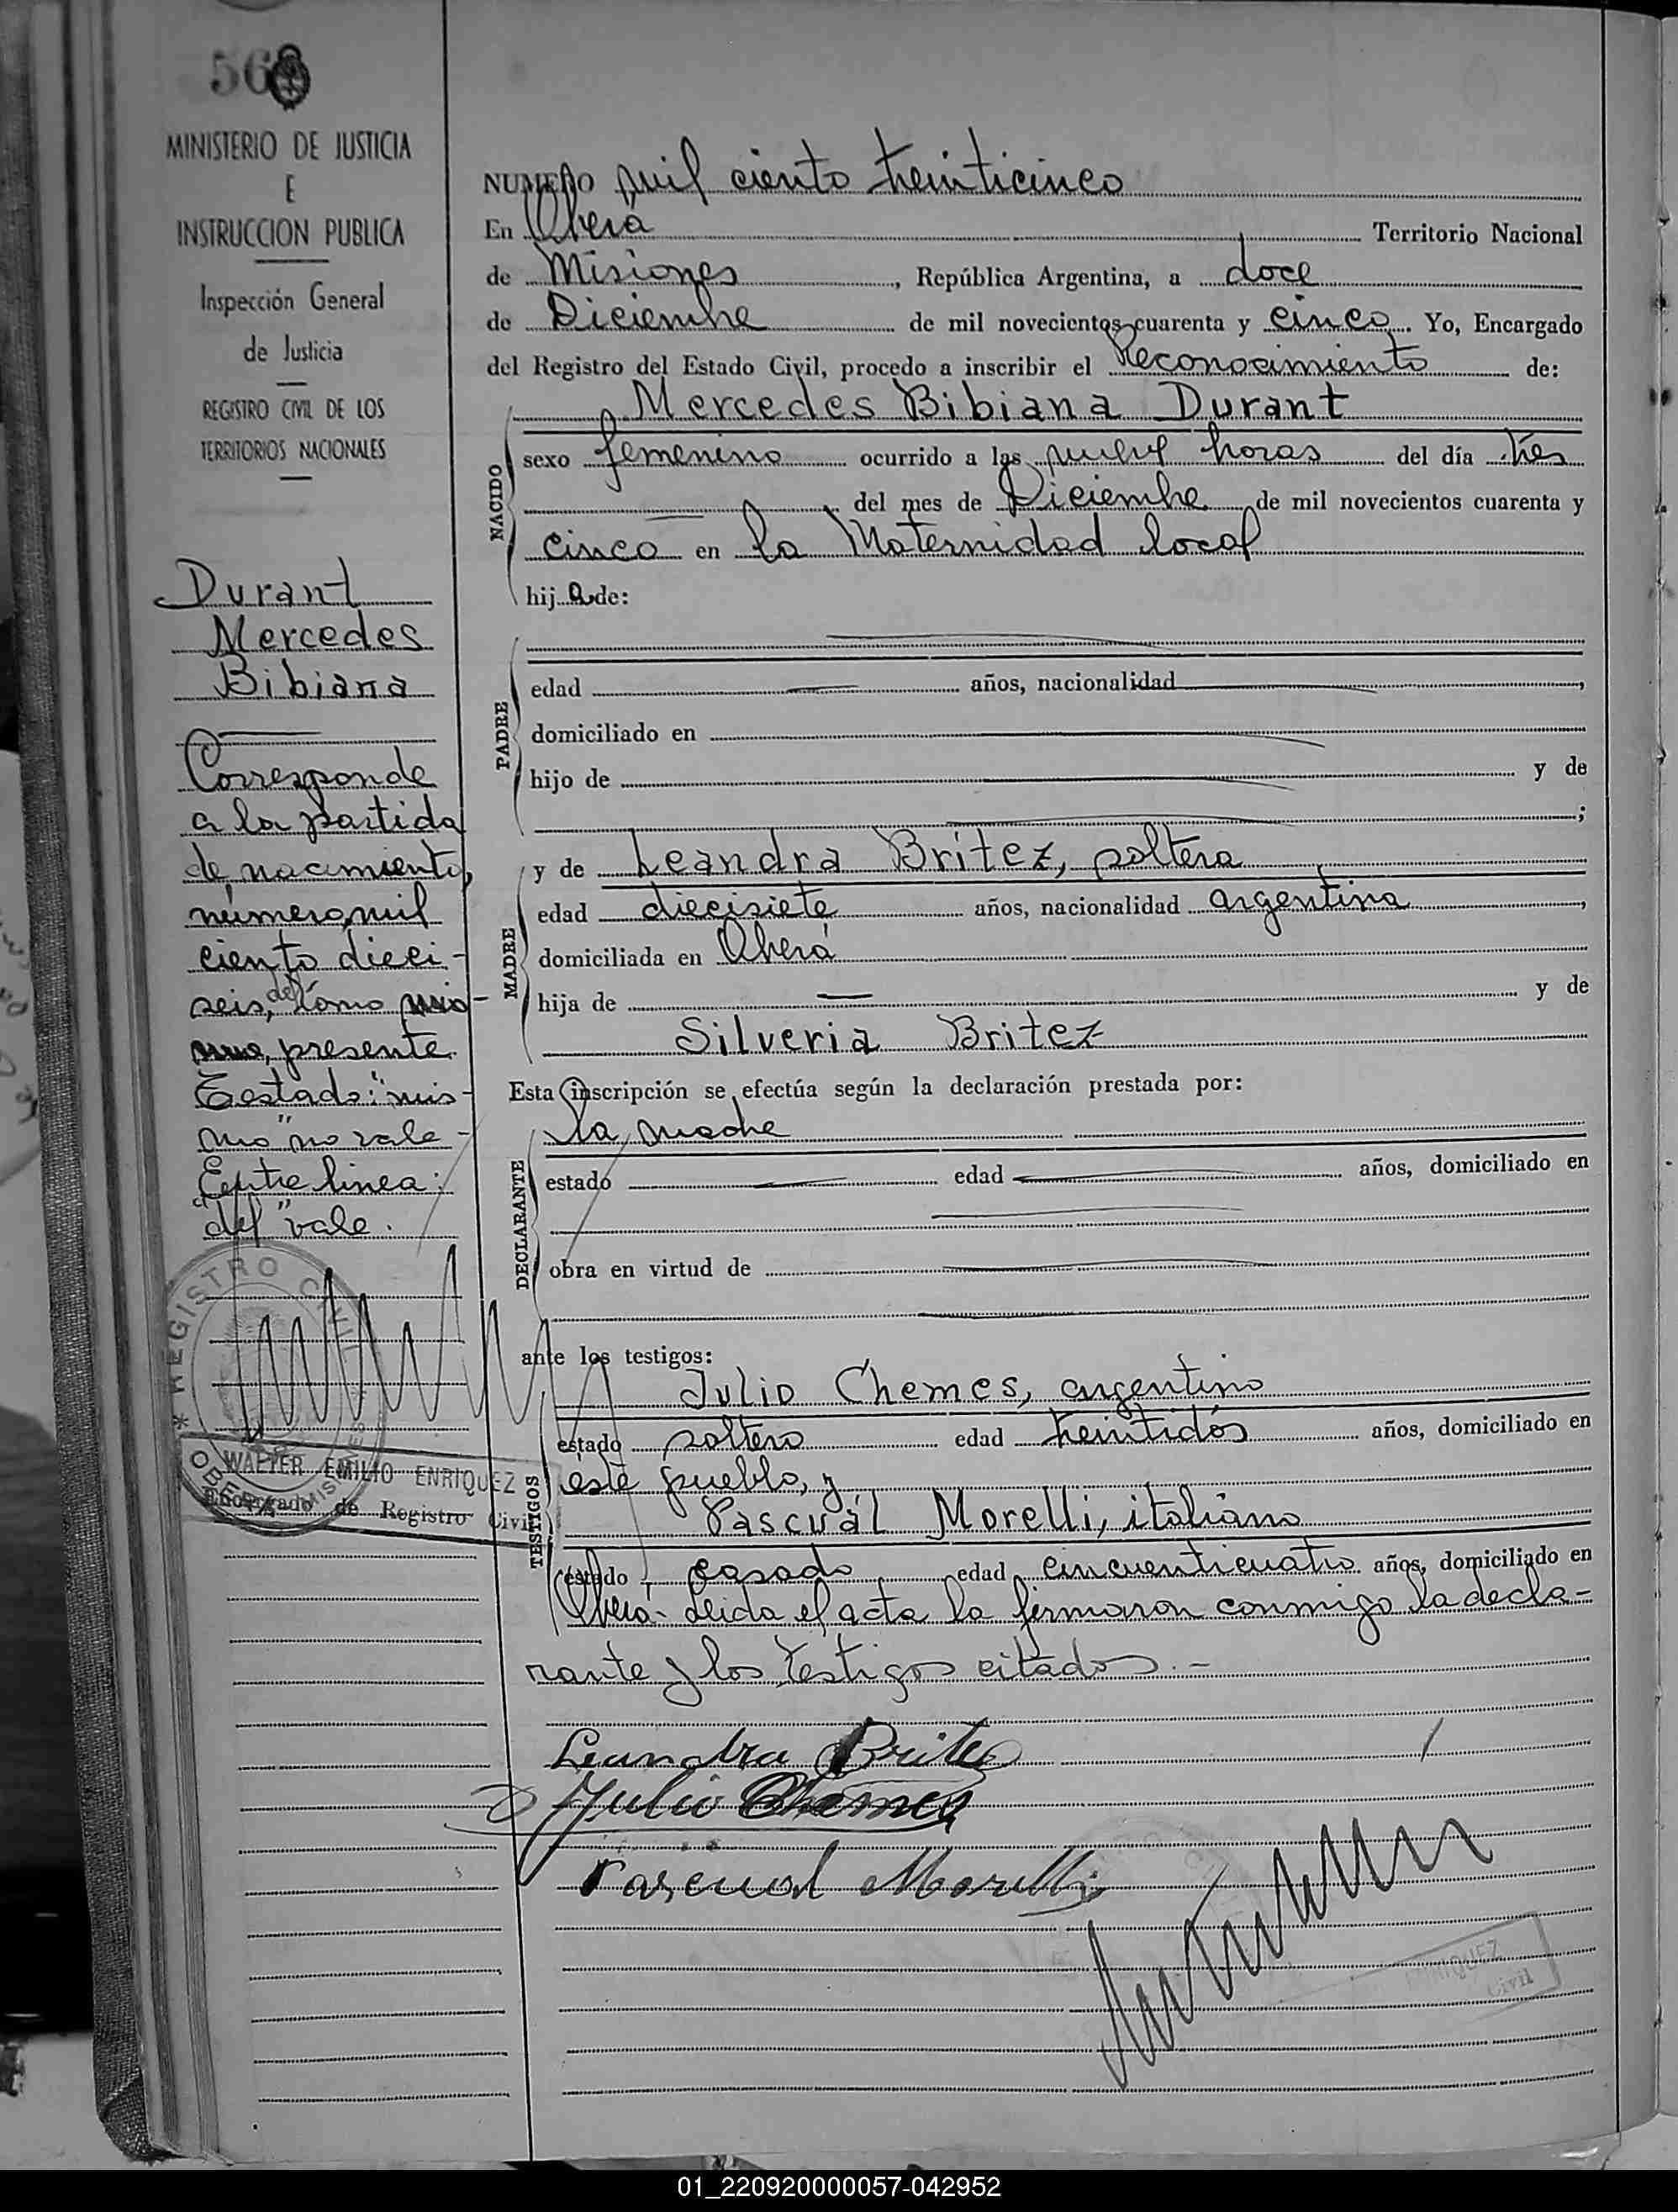 56
MINISTERIO DE JUSTICIA
E
INSTRUCCION PUBLICA
Inspección General
de Justicia
REGISTRO CIVIL DE LOS
TERRITORIOS NACIONALES
Durant
Mercedes
Bibiana
Corresponde
a la partida
de nacimiento,
número mil
ciento dieci-
seis, del tomo mis-
mo, presente.
Testado: "mis-
mo" no vale -
Entre linea:
"del" vale.
* REGISTRO CIVIL *
OBERA MISIONES
WALTER EMILIO ENRIQUEZ
Encargado de Registro Civil
NUMERO mil ciento treinticinco
En Oberá Territorio Nacional
de Misiones, República Argentina, a doce
de Diciembre de mil novecientos cuarenta y cinco. Yo, Encargado
del Registro del Estado Civil, procedo a inscribir el Reconocimiento de:
NACIDO
Mercedes Bibiana Durant
sexo femenino ocurrido a las nueve horas del día tres
del mes de Diciembre de mil novecientos cuarenta y
cinco en la Maternidad local
hija de:
PADRE
edad años, nacionalidad ,
domiciliado en
hijo de y de
;
MADRE
y de Leandra Britez, soltera
edad diecisiete años, nacionalidad argentina,
domiciliada en Oberá
hija de — y de
Silveria Britez
Esta inscripción se efectúa según la declaración prestada por:
DECLARANTE
la madre
estado edad años, domiciliado en
obra en virtud de
ante los testigos:
TESTIGOS
Julio Chemes, argentino
estado soltero edad treintidós años, domiciliado en
éste pueblo, y
Pascuál Morelli, italiano
estado casado edad cincuenticuatro años, domiciliado en
Oberá.- Leida el acta la firmaron conmigo la decla-
rante y los testigos citados.-
Leandra Britez
Julio Chemes
Pascual Morelli
ENRIQUEZ
Civil
01_220920000057-042952